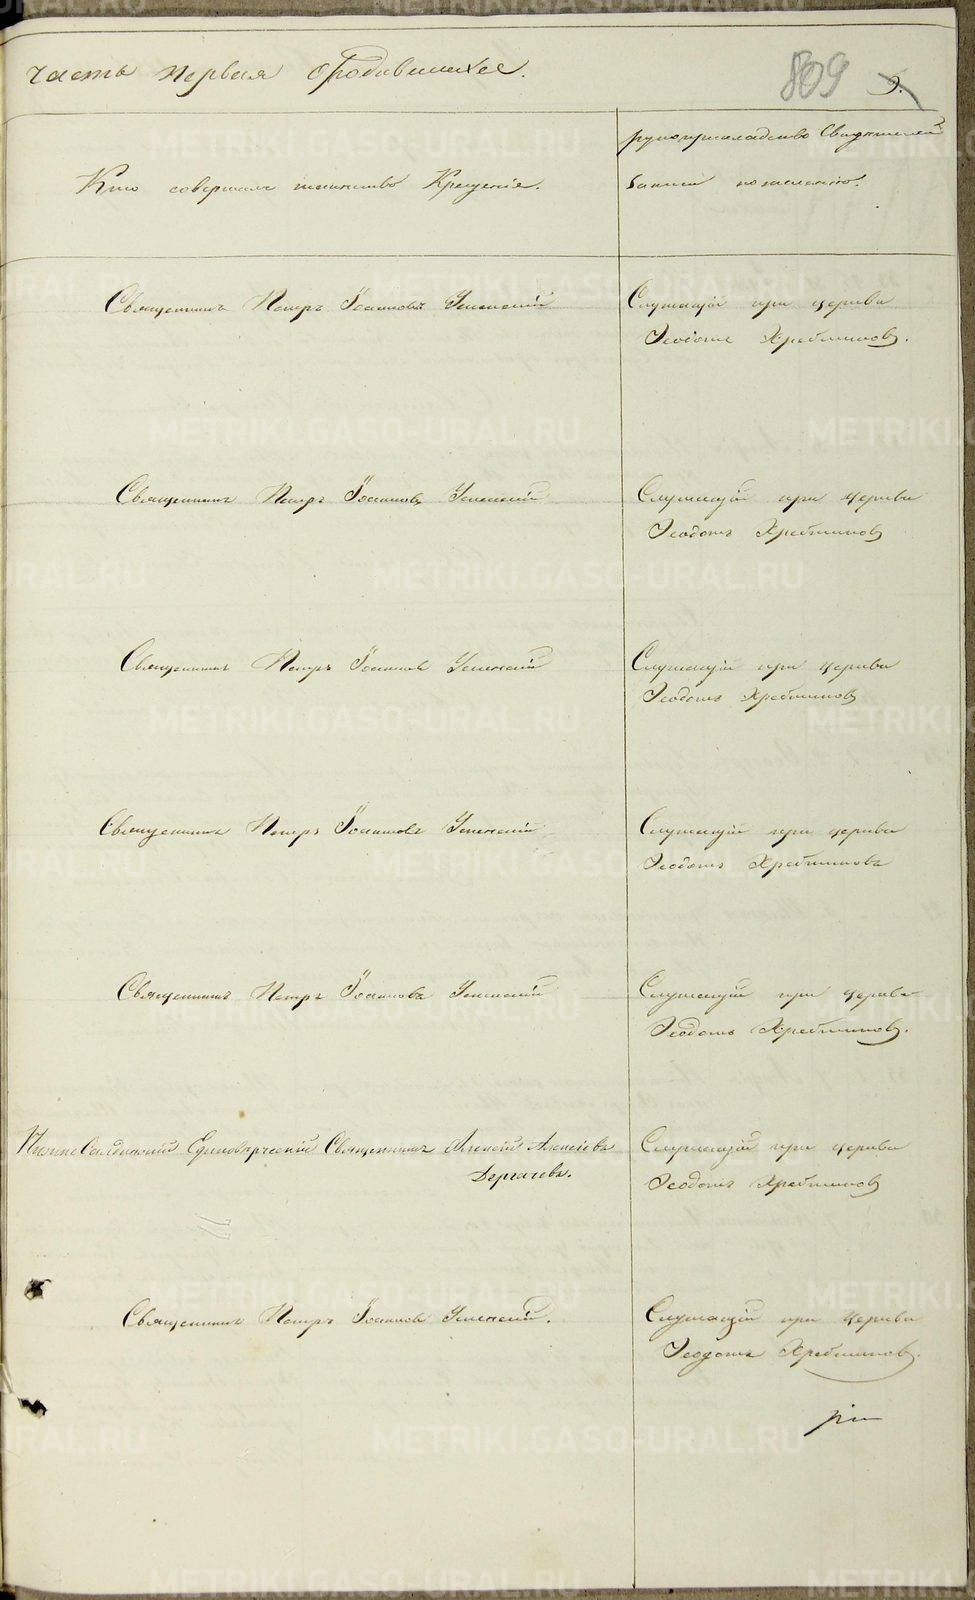 часть первая о родившихся.
809 9.
Кто совершалъ таинство Крещенія.
рукоприкладство Свидѣтелей
записи по желанію.
Священникъ Петръ Іоанновъ Успенскій
Служащій при церкви
Ѳеодотъ Хребтиковъ.
Священникъ Петръ Іоанновъ Успенскій
Служащій при церкви
Ѳеодотъ Хребтиковъ
Священникъ Петръ Іоанновъ Успенскій
Служащій при церкви
Ѳеодотъ Хребтиковъ
Священникъ Петръ Іоанновъ Успенскій
Служащій при церкви
Ѳеодотъ Хребтиковъ
Священникъ Петръ Іоанновъ Успенскій
Служащій при церкви
Ѳеодотъ Хребтиковъ.
Нижнесалдинскій Единовѣрческій Священникъ Алексій Алексіевъ
Дергачевъ.
Служащій при церкви
Ѳеодотъ Хребтиковъ
Священникъ Петръ Іоанновъ Успенскій.
Служащій при церкви
Ѳеодотъ Хребтиковъ.
METRIKI.GASO-URAL.RU